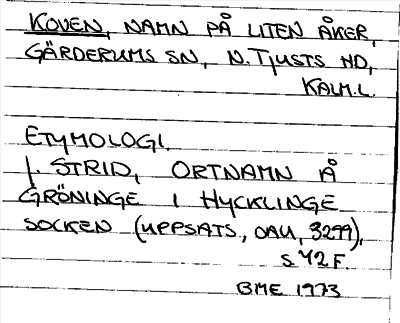 KOVEN, NAMN PÅ LITEN ÅKER,
GÄRDERUMS SN, N. TJUSTS HD,
KALM.L.
ETYMOLOGI.
J. STRID, ORTNAMN Å
GRÖNINGE I HYCKLINGE
SOCKEN (UPPSATS, OAU, 3299),
S 42 F.
BME 1973